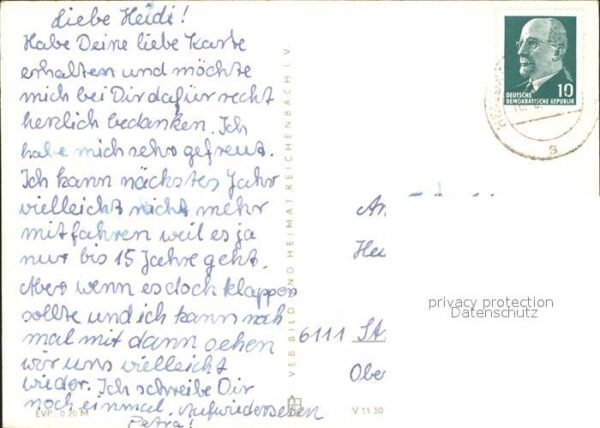 Liebe Heidi!
Habe Deine liebe Karte
erhalten und möchte
mich bei Dir dafür recht
herzlich bedanken. Ich
habe mich sehr gefreut.
Ich kann nächstes Jahr
vielleicht nicht mehr
mitfahren weil es ja
nur bis 15 Jahre geht.
Aber wenn es doch klappen
sollte und ich kann noch
mal mit dann sehen
wir uns vielleicht
wieder. Ich schreibe Dir
noch einmal. Aufwiedersehen
Petra!
EVP 0.20 M
VEB BILD UND HEIMAT REICHENBACH I. V.
10
DEUTSCHE
DEMOKRATISCHE REPUBLIK
s
An
Hei
6111 St
Ober
privacy protection
Datenschutz
V 11 50